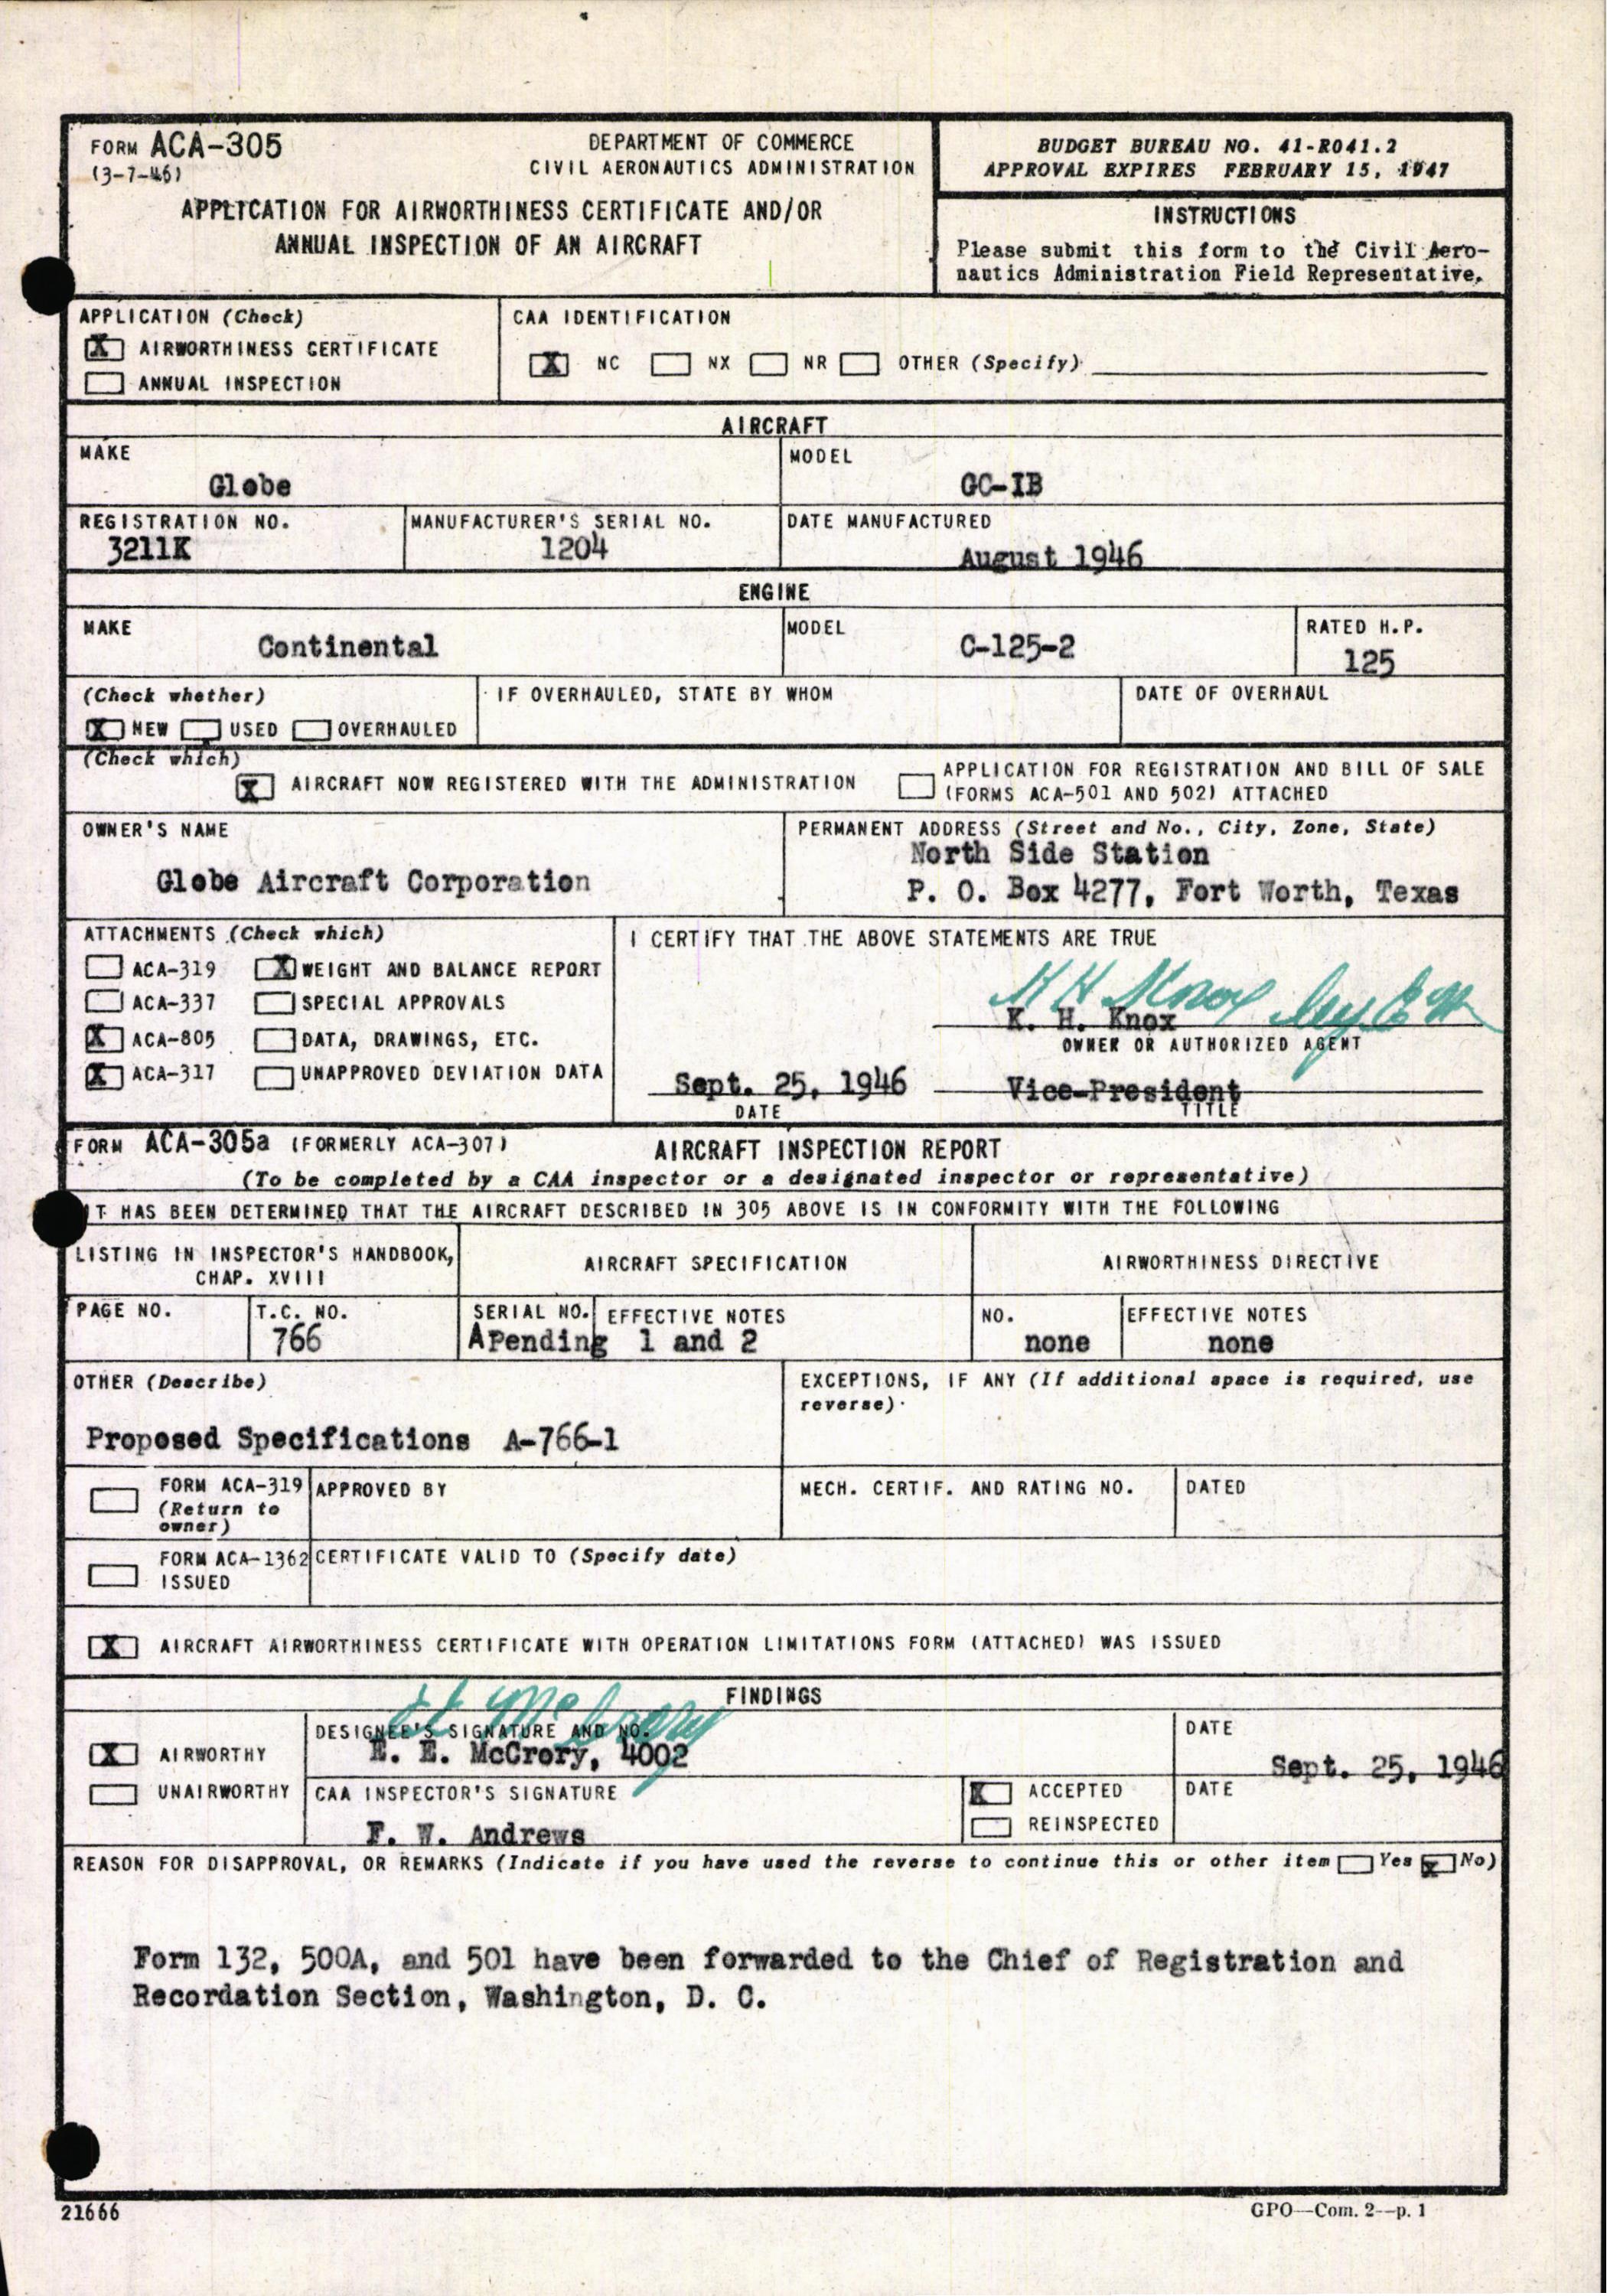 FORM ACA-305
(3-7-46)
DEPARTMENT OF COMMERCE
CIVIL AERONAUTICS ADMINISTRATION
APPLICATION FOR AIRWORTHINESS CERTIFICATE AND/OR
ANNUAL INSPECTION OF AN AIRCRAFT
BUDGET BUREAU NO. 41-R041.2
APPROVAL EXPIRES FEBRUARY 15, 1947
INSTRUCTIONS
Please submit this form to the Civil Aero-
nautics Administration Field Representative.
APPLICATION (Check)
X AIRWORTHINESS CERTIFICATE
ANNUAL INSPECTION
CAA IDENTIFICATION
X NC NX NR OTHER (Specify)
AIRCRAFT
MAKE
Globe
MODEL
GC-1B
REGISTRATION NO.
3211K
MANUFACTURER'S SERIAL NO.
1204
DATE MANUFACTURED
August 1946
ENGINE
MAKE
Continental
MODEL
C-125-2
RATED H.P.
125
(Check whether)
X NEW USED OVERHAULED
IF OVERHAULED, STATE BY WHOM
DATE OF OVERHAUL
(Check which)
X AIRCRAFT NOW REGISTERED WITH THE ADMINISTRATION
APPLICATION FOR REGISTRATION AND BILL OF SALE
(FORMS ACA-501 AND 502) ATTACHED
OWNER'S NAME
Globe Aircraft Corporation
PERMANENT ADDRESS (Street and No., City, Zone, State)
North Side Station
P. O. Box 4277, Fort Worth, Texas
ATTACHMENTS (Check which)
ACA-319 X WEIGHT AND BALANCE REPORT
ACA-337 SPECIAL APPROVALS
X ACA-805 DATA, DRAWINGS, ETC.
X ACA-317 UNAPPROVED DEVIATION DATA
I CERTIFY THAT THE ABOVE STATEMENTS ARE TRUE
K H Knox by
K. H. Knox
OWNER OR AUTHORIZED AGENT
Sept. 25, 1946 Vice-President
DATE TITLE
FORM ACA-305a (FORMERLY ACA-307) AIRCRAFT INSPECTION REPORT
(To be completed by a CAA inspector or a designated inspector or representative)
IT HAS BEEN DETERMINED THAT THE AIRCRAFT DESCRIBED IN 305 ABOVE IS IN CONFORMITY WITH THE FOLLOWING
LISTING IN INSPECTOR'S HANDBOOK,
CHAP. XVIII
AIRCRAFT SPECIFICATION
AIRWORTHINESS DIRECTIVE
PAGE NO.
T.C. NO.
766
SERIAL NO.
APending
EFFECTIVE NOTES
1 and 2
NO.
none
EFFECTIVE NOTES
none
OTHER (Describe)
Proposed Specifications A-766-1
EXCEPTIONS, IF ANY (If additional space is required, use
reverse).
FORM ACA-319
(Return to
owner)
APPROVED BY
MECH. CERTIF. AND RATING NO.
DATED
FORM ACA-1362
ISSUED
CERTIFICATE VALID TO (Specify date)
X AIRCRAFT AIRWORTHINESS CERTIFICATE WITH OPERATION LIMITATIONS FORM (ATTACHED) WAS ISSUED
FINDINGS
X AIRWORTHY
UNAIRWORTHY
E E McCrory
DESIGNEE'S SIGNATURE AND NO.
E. E. McCrory, 4002
DATE
Sept. 25, 1946
CAA INSPECTOR'S SIGNATURE
F. W. Andrews
X ACCEPTED
REINSPECTED
DATE
REASON FOR DISAPPROVAL, OR REMARKS (Indicate if you have used the reverse to continue this or other item Yes X No)
Form 132, 500A, and 501 have been forwarded to the Chief of Registration and
Recordation Section, Washington, D. C.
21666
GPO—Com. 2—p. 1